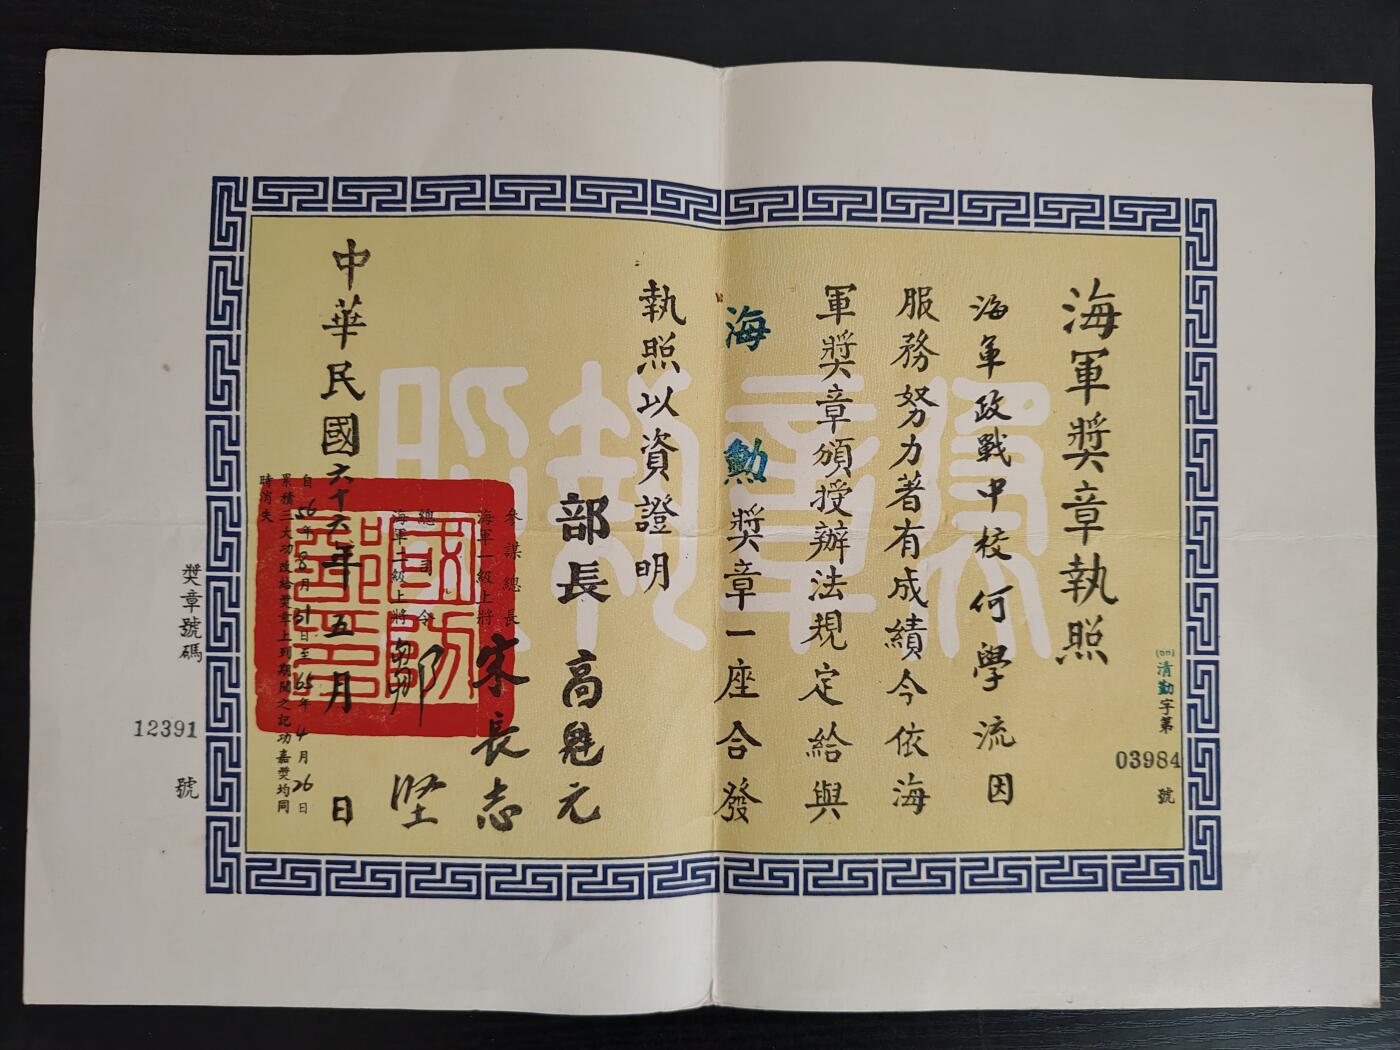 海軍獎章執照
(66)清勤字第 03984 號
海軍政戰中校何學流因
服務努力著有成績今依海
軍獎章頒授辦法規定給與
海勳獎章一座合發
執照以資證明
部長 高魁元
參謀總長
海軍一級上將 宋長志
總司令
海軍二級上將 鄒堅
中華民國六十六年五月 日
自56年8月31日至65年4月26日
累積三大功改給獎章上列期間之記功嘉獎均同
時消失
獎章號碼 12391 號
獎章執照
國防部印